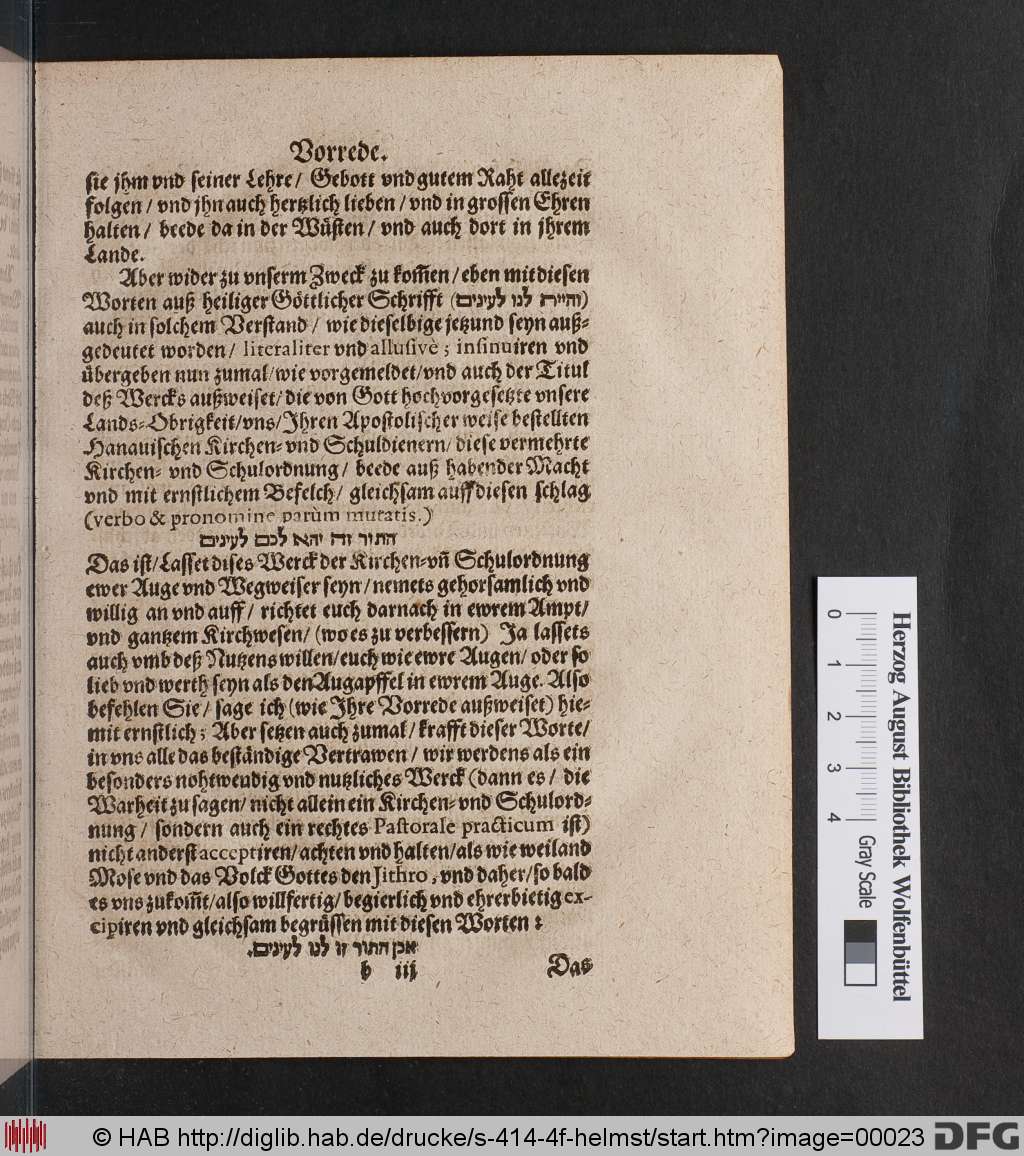 Vorrede.
sie jhm vnd seiner Lehre/ Gebott vnd gutem Raht allezeit
folgen/ vnd jhn auch hertzlich lieben/ vnd in grossen Ehren
halten/ beede da in der Wüsten/ vnd auch dort in jhrem
Lande.
Aber wider zu vnserm Zweck zu kom̃en/ eben mit diesen
Worten auß heiliger Göttlicher Schrifft (והיית לנו לעינים)
auch in solchem Verstand/ wie dieselbige jetzund seyn auß-
gedeutet worden/ literaliter vnd allusivè; insinuiren vnd
übergeben nun zumal/ wie vorgemeldet/ vnd auch der Titul
deß Wercks außweiset/ die von Gott hochvorgesetzte vnsere
Lands-Obrigkeit/ vns/ Ihren Apostolischer weise bestellten
Hanauischen Kirchen- vnd Schuldienern/ diese vermehrte
Kirchen- vnd Schulordnung/ beede auß habender Macht
vnd mit ernstlichem Befelch/ gleichsam auff diesen schlag
(verbo & pronomine parùm mutatis.)
התור זה יהא לכם לעינים
Das ist/ Lasset dises Werck der Kirchen- vn̄ Schulordnung
ewer Auge vnd Wegweiser seyn/ nemets gehorsamlich vnd
willig an vnd auff/ richtet euch darnach in ewrem Ampt/
vnd gantzem Kirchwesen/ (wo es zu verbessern) Ja lassets
auch vmb deß Nutzens willen/ euch wie ewre Augen/ oder so
lieb vnd werth seyn als den Augapffel in ewrem Auge. Also
befehlen Sie/ sage ich (wie Ihre Vorrede außweiset) hie-
mit ernstlich; Aber setzen auch zumal/ krafft dieser Worte/
in vns alle das beständige Vertrawen/ wir werdens als ein
besonders nohtwendig vnd nutzliches Werck (dann es/ die
Warheit zu sagen/ nicht allein ein Kirchen- vnd Schulord-
nung/ sondern auch ein rechtes Pastorale practicum ist)
nicht anderst acceptiren/ achten vnd halten/ als wie weiland
Mose vnd das Volck Gottes den Jithro, vnd daher/ so bald
es vns zukom̃t/ also willfertig/ begierlich vnd ehrerbietig ex-
cipiren vnd gleichsam begrüssen mit diesen Worten:
אכן התור זו לנו לעינים.
b iij Das
Herzog August Bibliothek Wolfenbüttel
0 1 2 3 4
Gray Scale
© HAB http://diglib.hab.de/drucke/s-414-4f-helmst/start.htm?image=00023 DFG